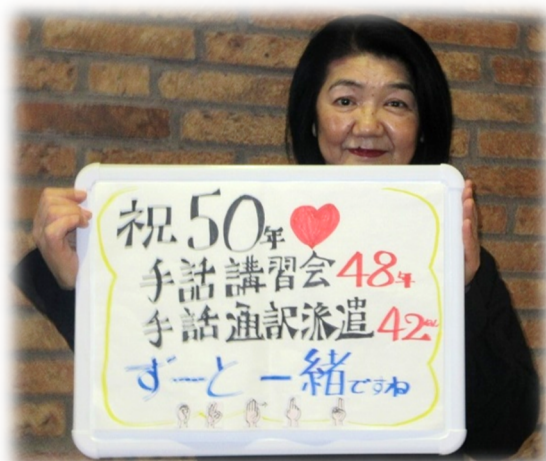 祝50年
手話講習会48年
手話通訳派遣42年
ずーと一緒ですね